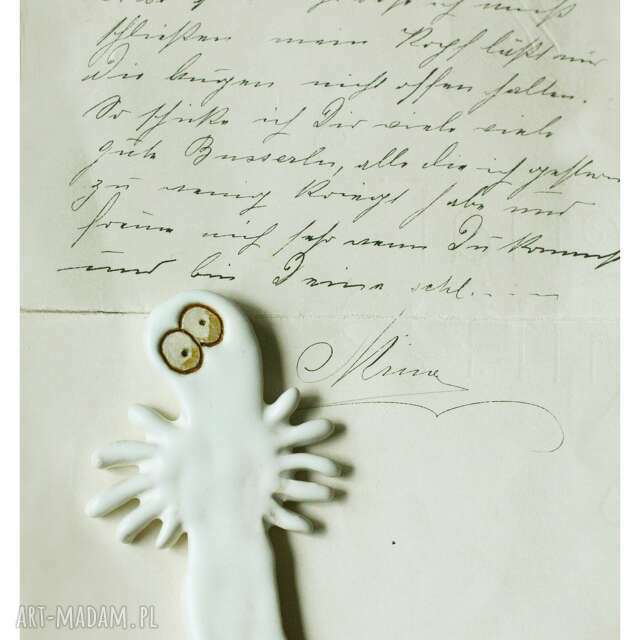 ich muß
schließen mein Kopf läßt mir
die Augen nicht offen halten.
So schicke ich Dir viele viele
gute Busserln, alle die ich gestern
zu wenig kriegt habe und
freue mich sehr wenn Du kommst
und bin Deine schl.....
Mina
ART-MADAM.PL